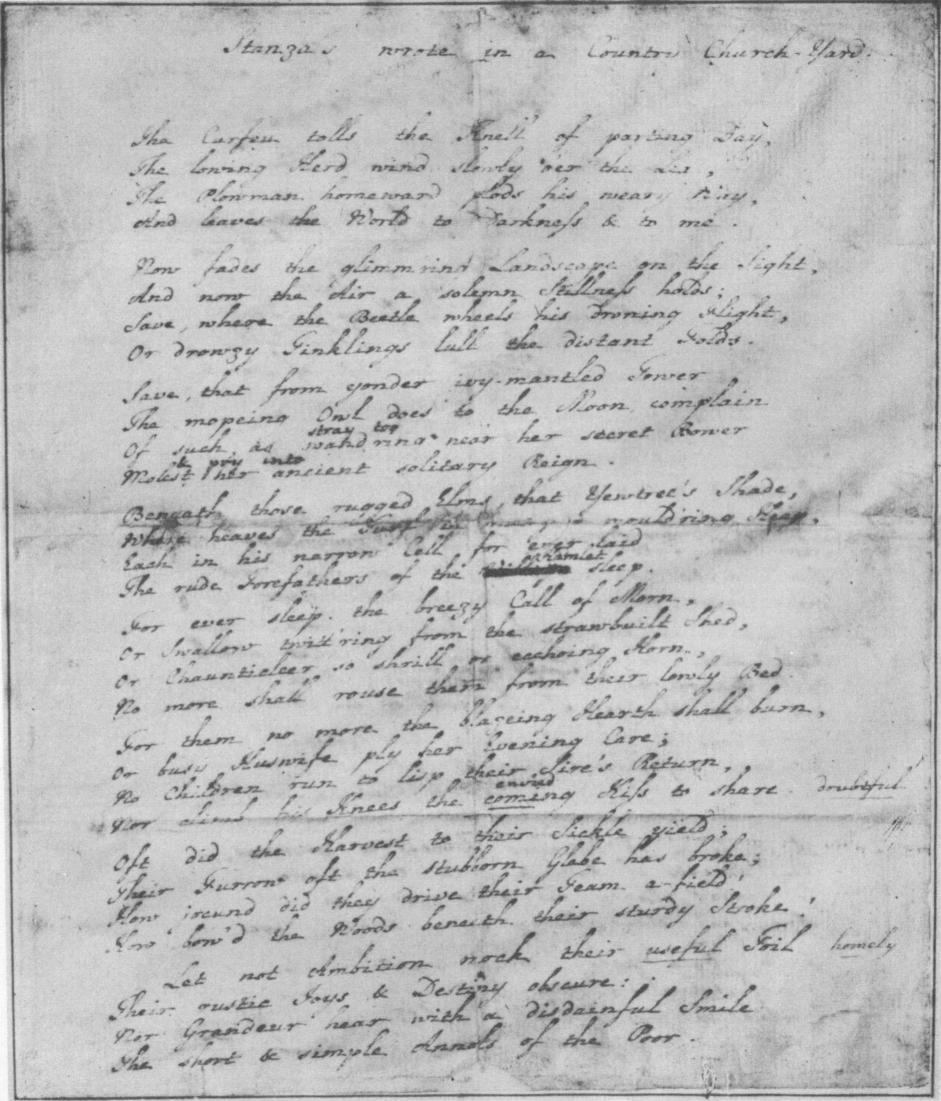 Stanza's wrote in a Country Church-Yard.
The Curfeu tolls the Knell of parting Day,
The lowing Herd wind slowly o'er the Lea,
The Plowman homeward plods his weary Way,
And leaves the World to Darkness & to me.
Now fades the glimm'ring Landscape on the Sight,
And now the Air a solemn Stillness holds;
Save, where the Beetle wheels his droning Flight,
Or drowzy Tinklings lull the distant Folds.
Save, that from yonder ivy-mantled Tower
The mopeing Owl does to the Moon complain
stray too
Of such as wand'ring near her secret Bower
& pry into
Molest her ancient solitary Reign.
Beneath those rugged Elms, that Yewtree's Shade,
Where heaves the Turf in many a mould'ring Heap,
Each in his narrow Cell for ever laid
Hamlet
The rude Forefathers of the sleep.
For ever sleep. the breezy Call of Morn,
Or Swallow twitt'ring from the strawbuilt Shed,
Or Chaunticleer so shrill or ecchoing Horn,
No more shall rouse them from their lowly Bed.
For them no more the blazeing Hearth shall burn,
Or busy Huswife ply her Evening Care;
No Children run to lisp their Sire's Return,
envied
Nor climb his Knees the coming Kiss to share. doubtful
Oft did the Harvest to their Sickle yield;
Their Furrow oft the stubborn Glebe has broke;
How jocund did they drive their Team a-field!
How bow'd the Woods beneath their sturdy Stroke!
Let not Ambition mock their useful Toil homely
Their rustic Joys & Destiny obscure:
Nor Grandeur hear with a disdainful Smile
The short & simple Annals of the Poor.